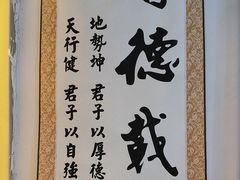 德載
地勢坤 君子以厚德
天行健 君子以自強